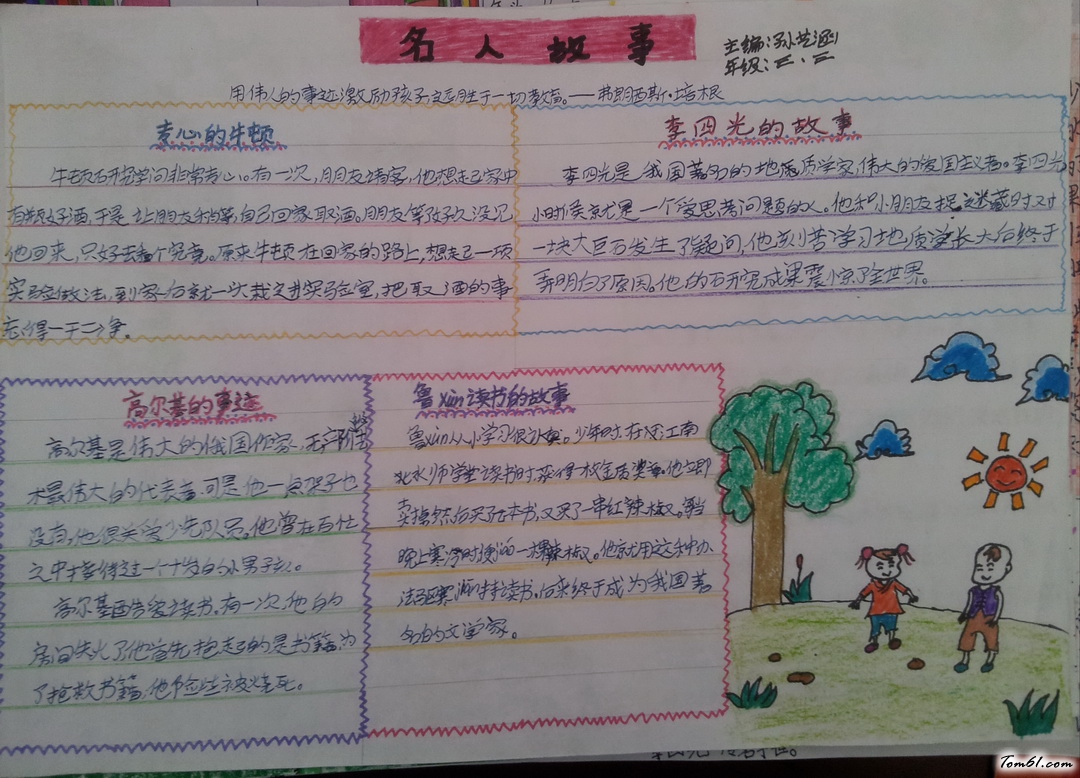 名人故事
主编:孙艺涵
年级:三、三
用伟人的事迹激励孩子远胜于一切教育。——弗朗西斯·培根
专心的牛顿
牛顿研究学问非常专心。有一次,朋友请客,他想起家中
有瓶好酒,于是让朋友稍等,自己回家取酒。朋友等了好久没见
他回来,只好去看个究竟。原来牛顿在回家的路上,想起了一项
实验做法,到家后就一头栽进实验室,把取酒的事
忘得一干二净。
李四光的故事
李四光是我国著名的地质学家,伟大的爱国主义者。李四光
小时候就是一个爱思考问题的人。他和小朋友捉迷藏时对
一块大巨石发生了疑问,他刻苦学习地质学长大后终于
弄明白了原因。他的研究成果震惊了全世界。
高尔基的事迹
高尔基是伟大的俄国作家,无产阶级艺
术最伟大的代表者,可是他一点架子也
没有,他很关爱少先队员。他曾在百忙
之中接待过一个十岁的小男孩。
高尔基酉爱读书,有一次,他的
房间失火了他首先抢起的是书籍,为
了抢救书籍,他险些被烧死。
鲁xùn读书的故事
鲁xùn从小学习很认真。少年时,在江南
水师学堂读书时获得一枚金质奖章,他立即
卖掉然后买了几本书,又买了一串红辣椒。每当
晚上寒冷时 一棵辣椒。他就用这种办
法驱寒 坚持读书。后来终于成为我国著
名的文学家。
Tom61.com